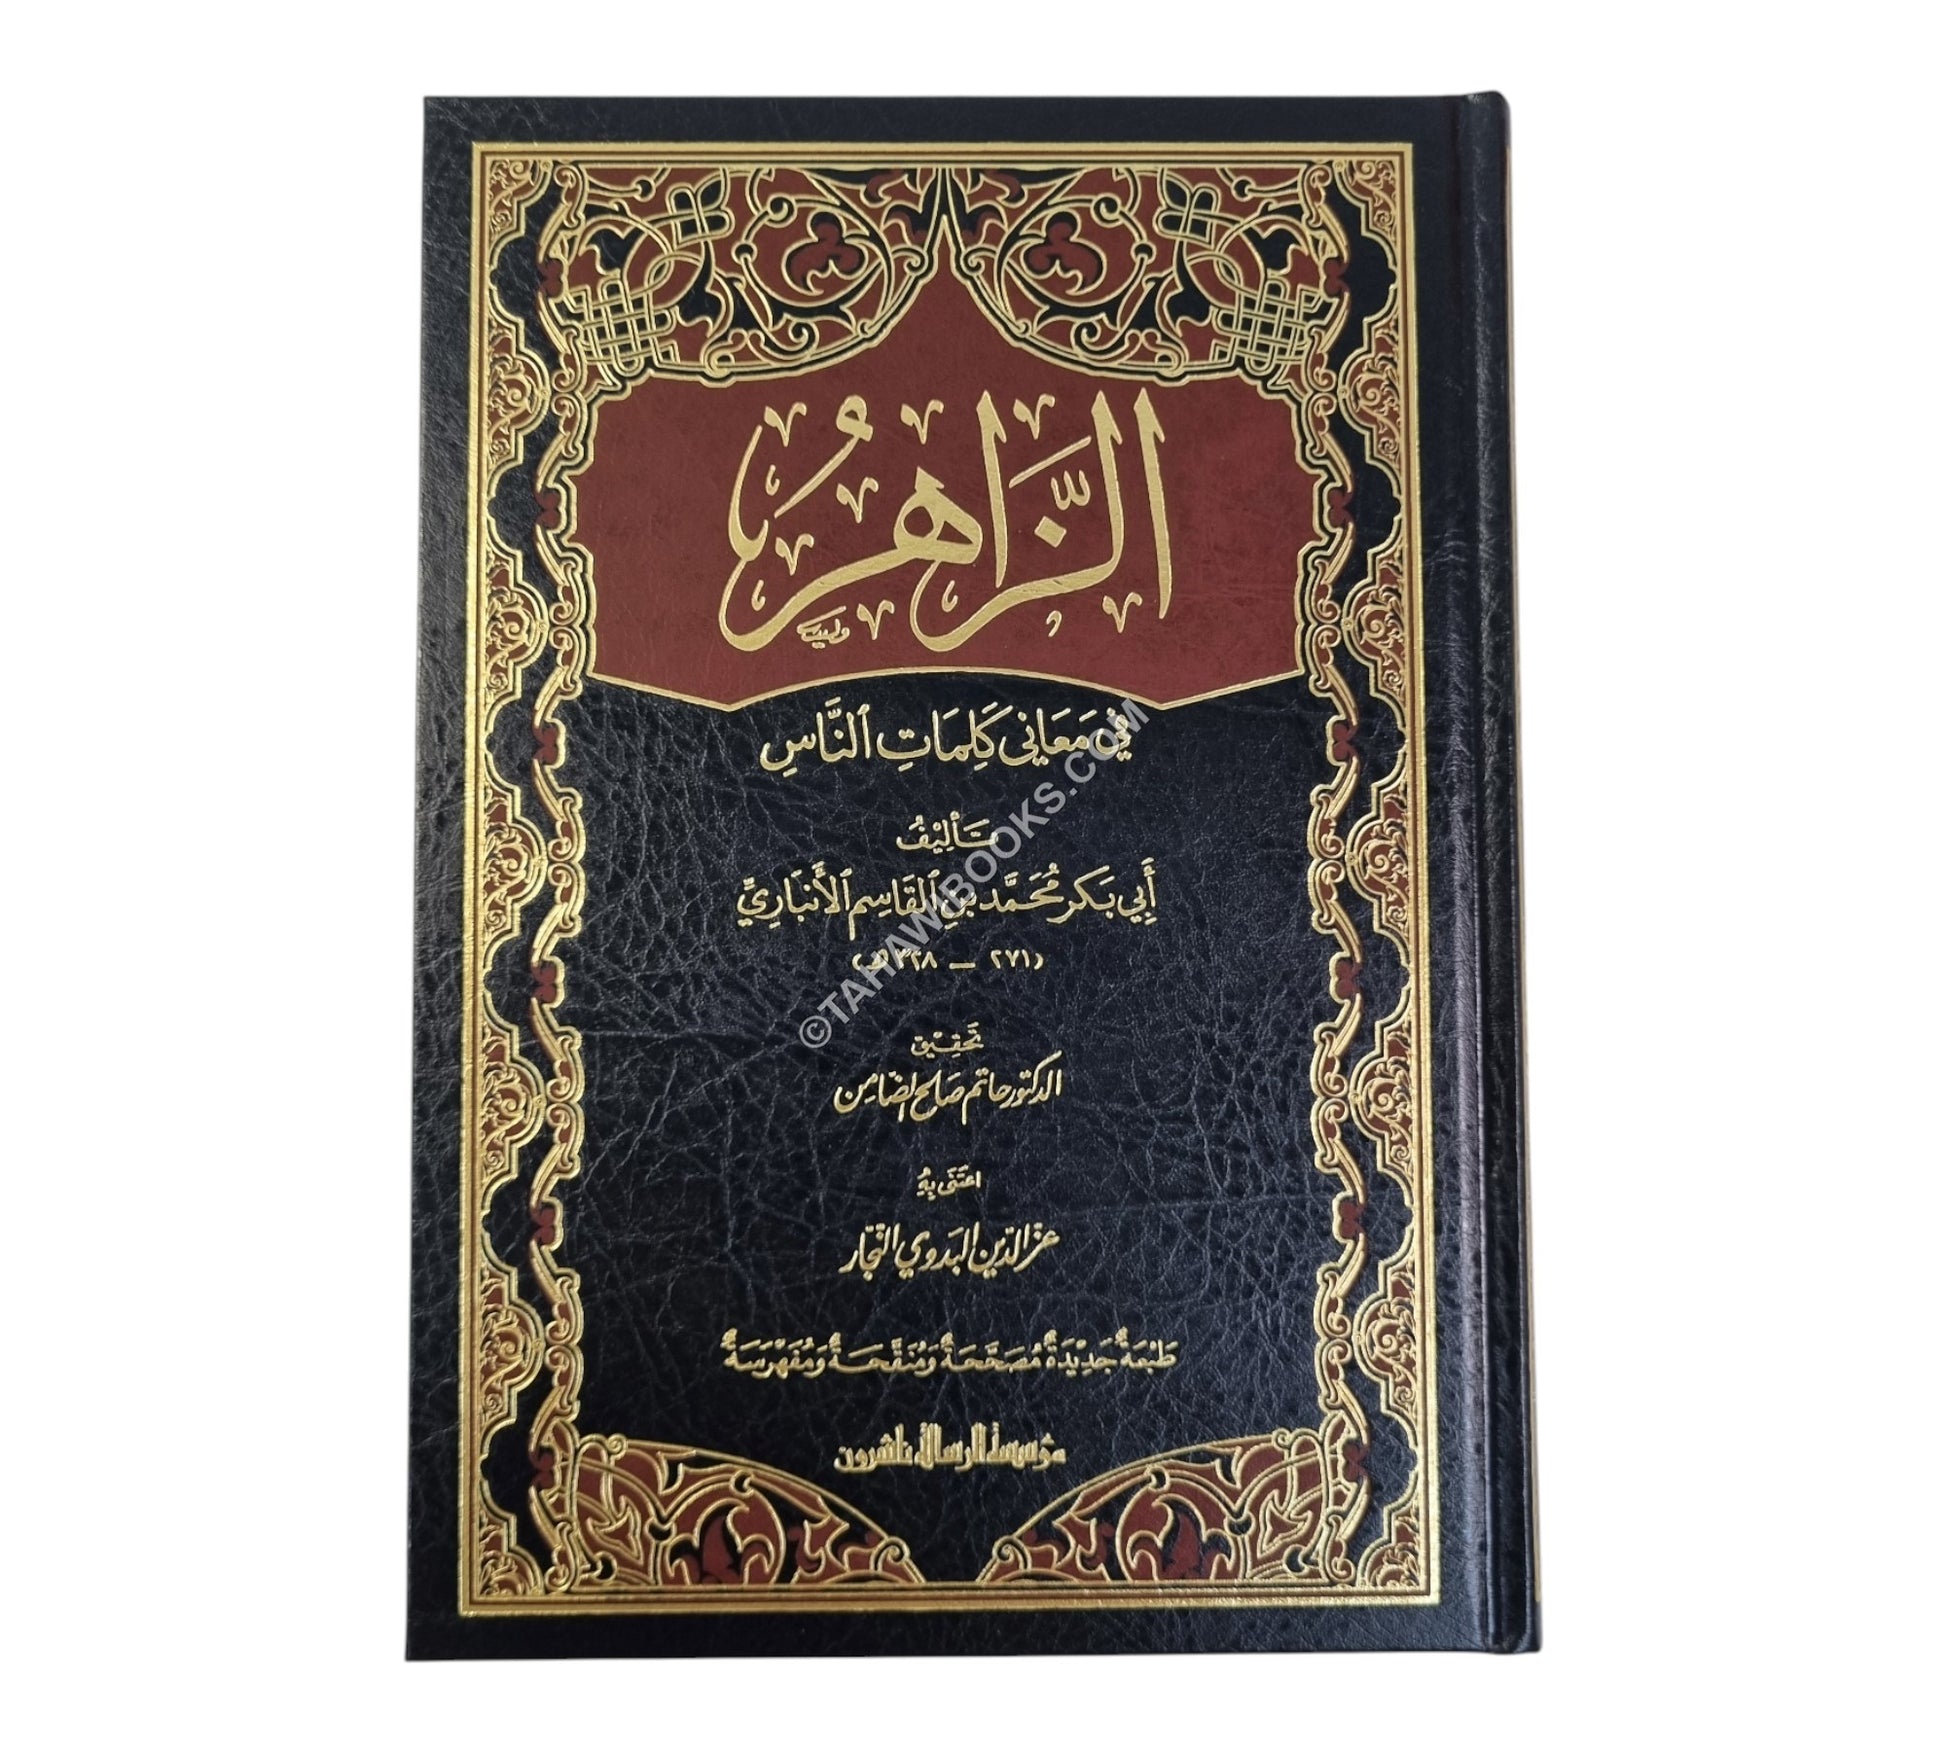 الزَّاهِرُ
وليد
فِي مَعَانِي كَلِمَاتِ ٱلنَّاسِ
تَأْلِيْفُ
أَبِي بَكر مُحَمَّد بنِ ٱلقَاسِم ٱلأَنْبَارِيِّ
(٢٧١ – ٣٢٨ هـ)
تَحقِيْق
الدكتور حاتم صَالح الضَّامِن
اعتَنَى بِهِ
عز الدّين البَدوي النَّجّار
طَبْعَةٌ جَدِيْدَةٌ مُصَحَّحَةٌ وَمُنَقَّحَةٌ وَمُفَهْرَسَةٌ
مؤسسة الرسالة ناشرون
©TAHAWIBOOKS.COM